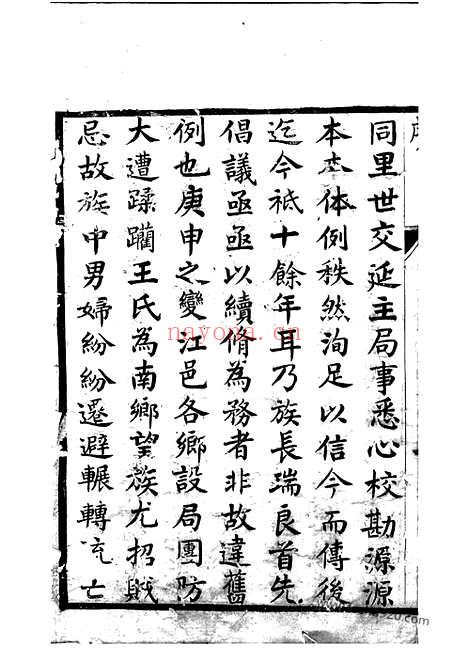 同里世交延主局事悉心校勘源源
本本体例秩然洵足以信今而傳後
迄今祗十餘年耳乃族長瑞良首先
倡議亟亟以續脩為務者非故違舊
例也庚申之變江邑各鄉設局團防
大遭蹂躪王氏為南鄉望族尤招賊
忌故族中男婦紛紛遷避輾轉流亡
nayona.cn